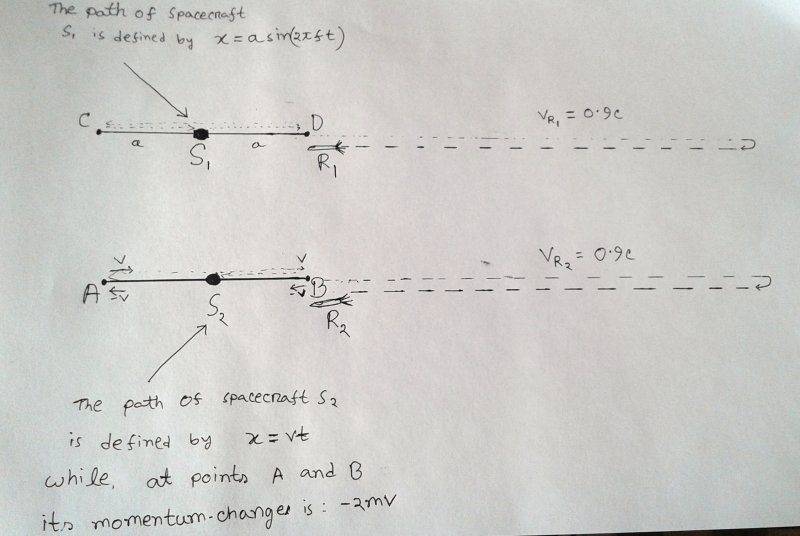 The path of spacecraft
S₁ is defined by x = a sin(2πft)
C D
a a
S₁ R₁
V_R₁ = 0.9c
V V
A V V B
S₂ R₂
V_R₂ = 0.9c
The path of spacecraft S₂
is defined by x = vt
while, at points A and B
its momentum-changes is : -2mv